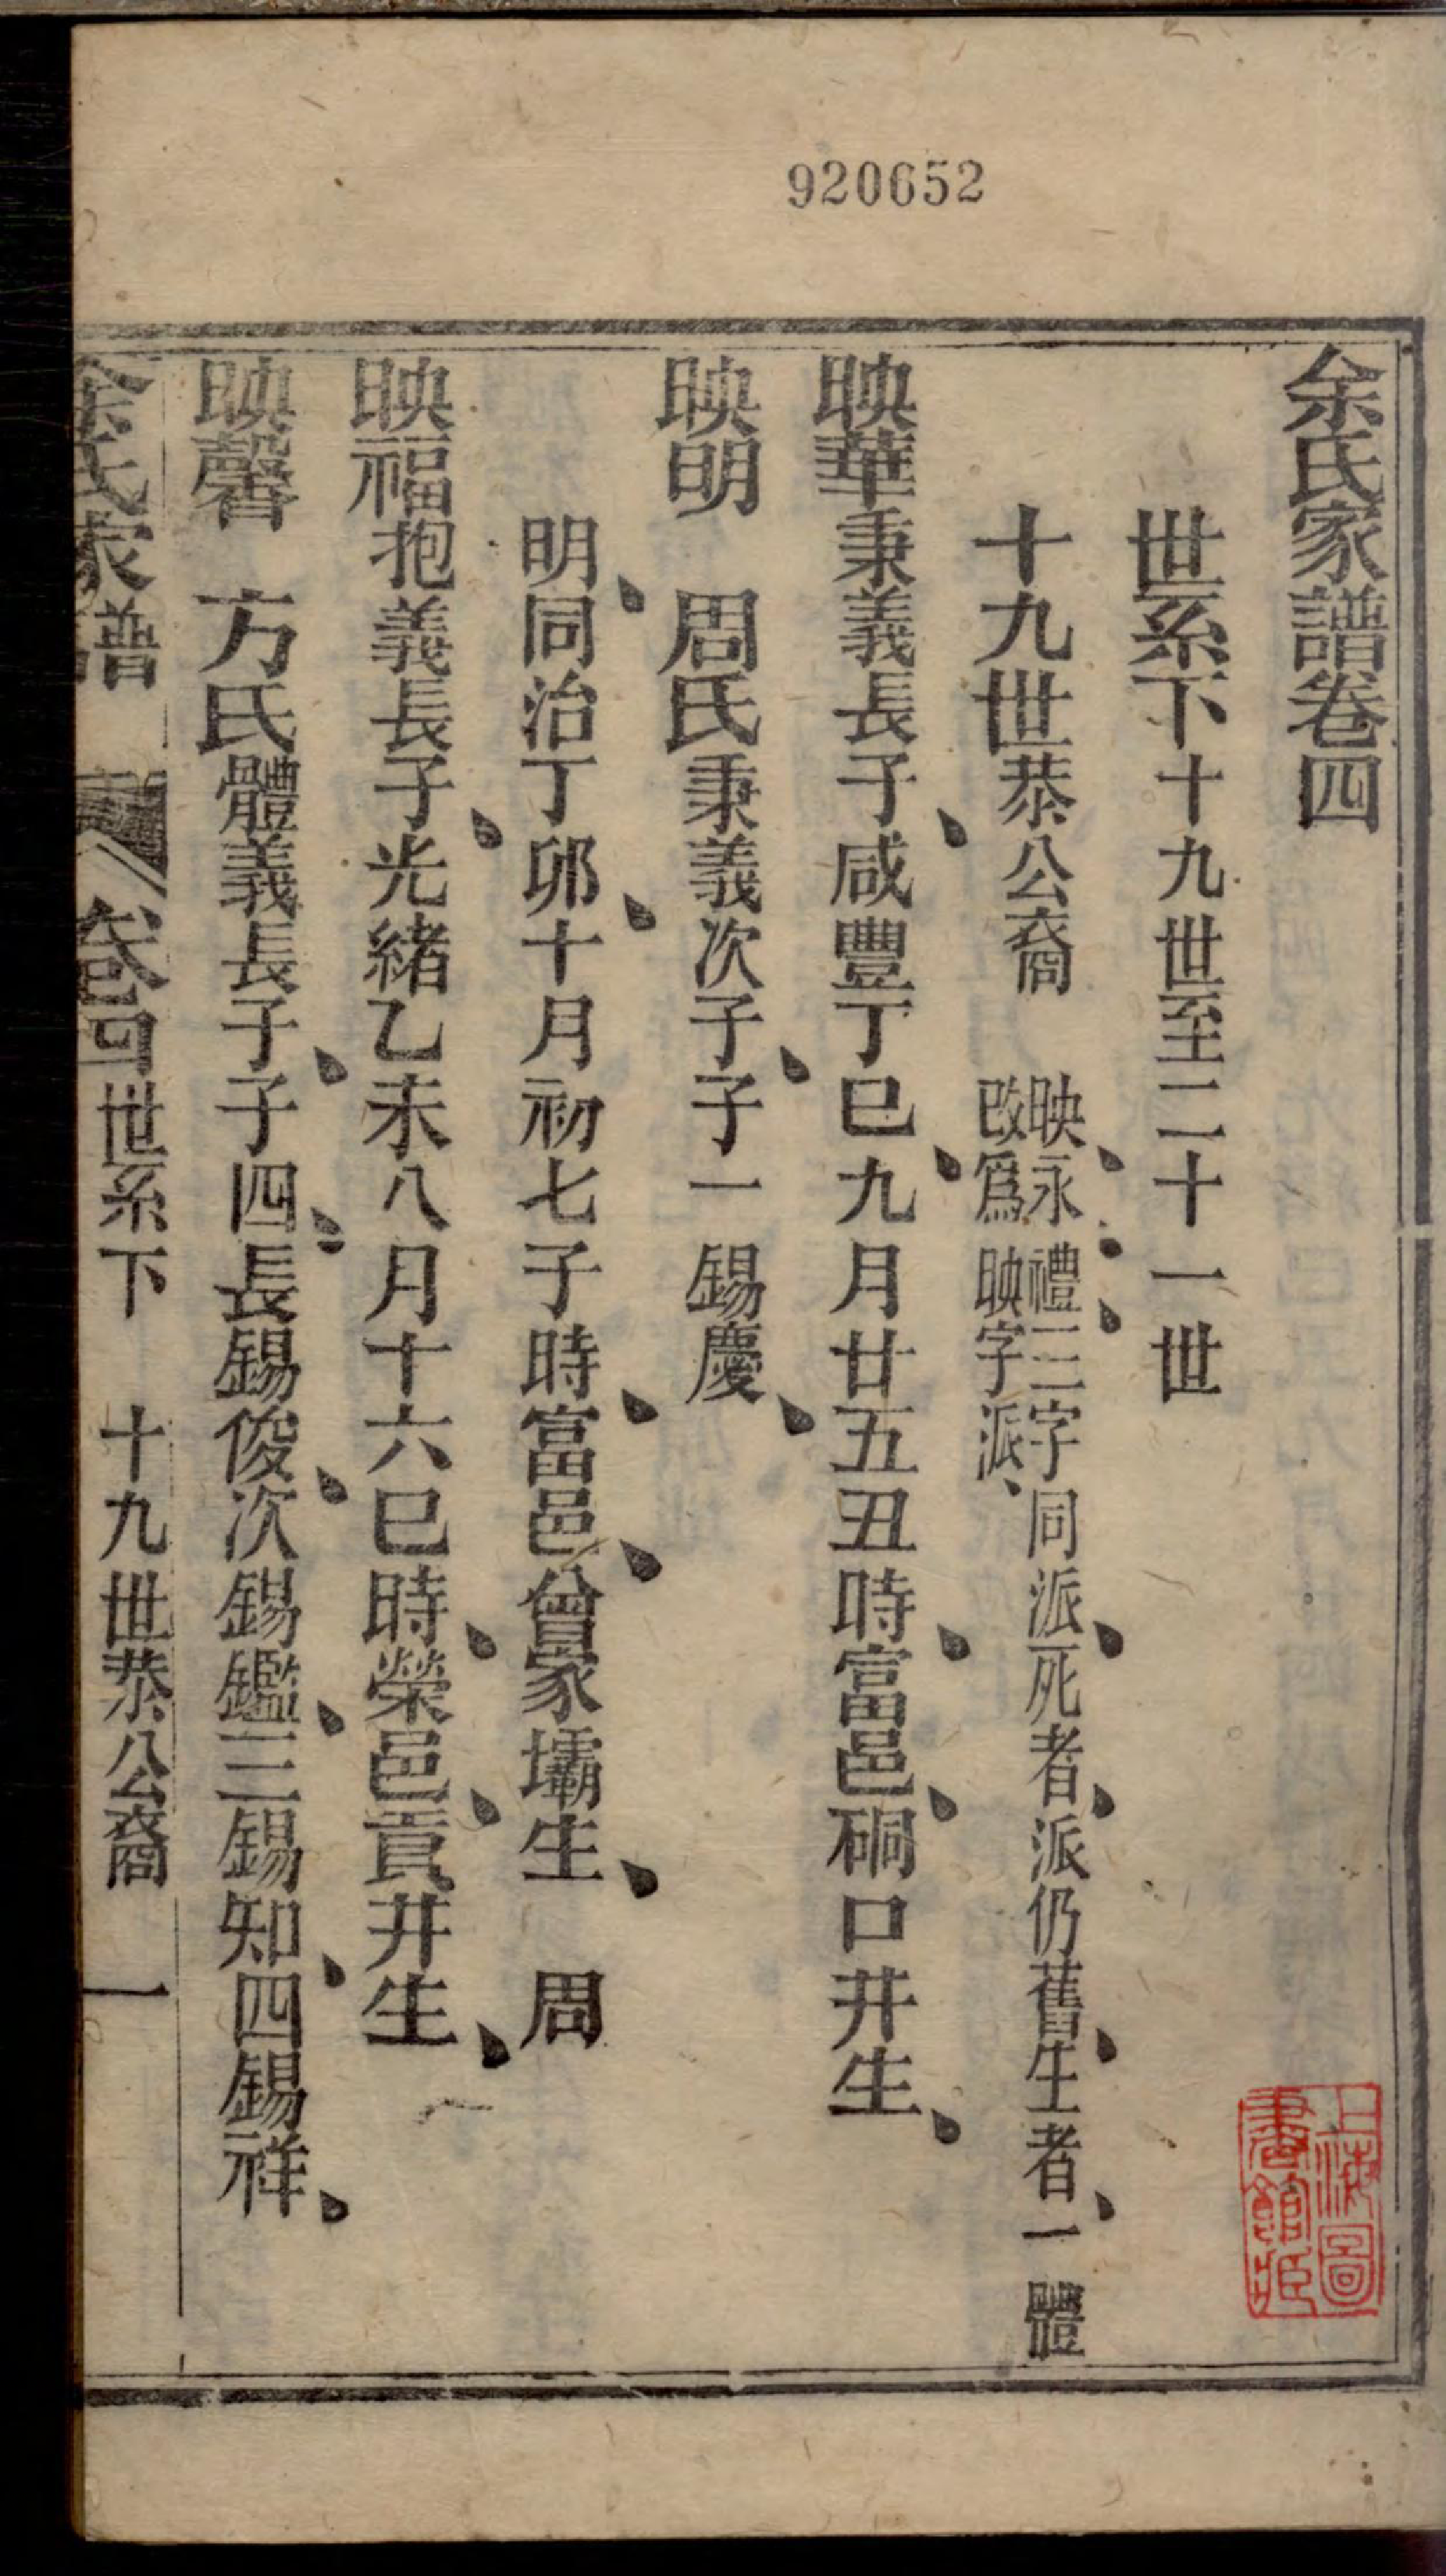 920652
余氏家譜卷四
世系下十九世至二十一世
十九世恭公裔 映、永、禮、三字同派、死者、派仍舊、生者、一體
改爲映字派、
映華秉義長子、咸豐丁巳、九月廿五丑時、富邑、硐口井生、
映明 周氏秉義次子、子一錫慶、
明、同治丁卯、十月初七子時、富邑、曾家壩生、 周
映福抱義長子、光緒乙未八月十六巳時、榮邑、貢井生、
映馨 方氏體義長子、子四、長錫俊、次錫鑑、三錫知、四錫祥、
余氏家譜 卷四世系下 十九世恭公裔 一
上海圖
書館藏